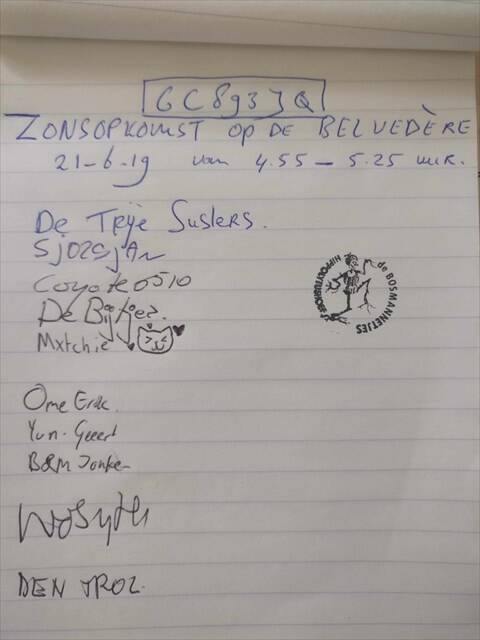 GC893JQ
ZONSOPKOMST OP DE BELVEDÈRE
21-6-19 van 4.55 - 5.25 uur.
De Trije Suslers.
SJOZSJAN
Coyote0510
de BOSMANNETJES
De Bijkes.
Mxtchie
Ome Eric.
Yun-Geert
B&M Jonker
DEN TROL.